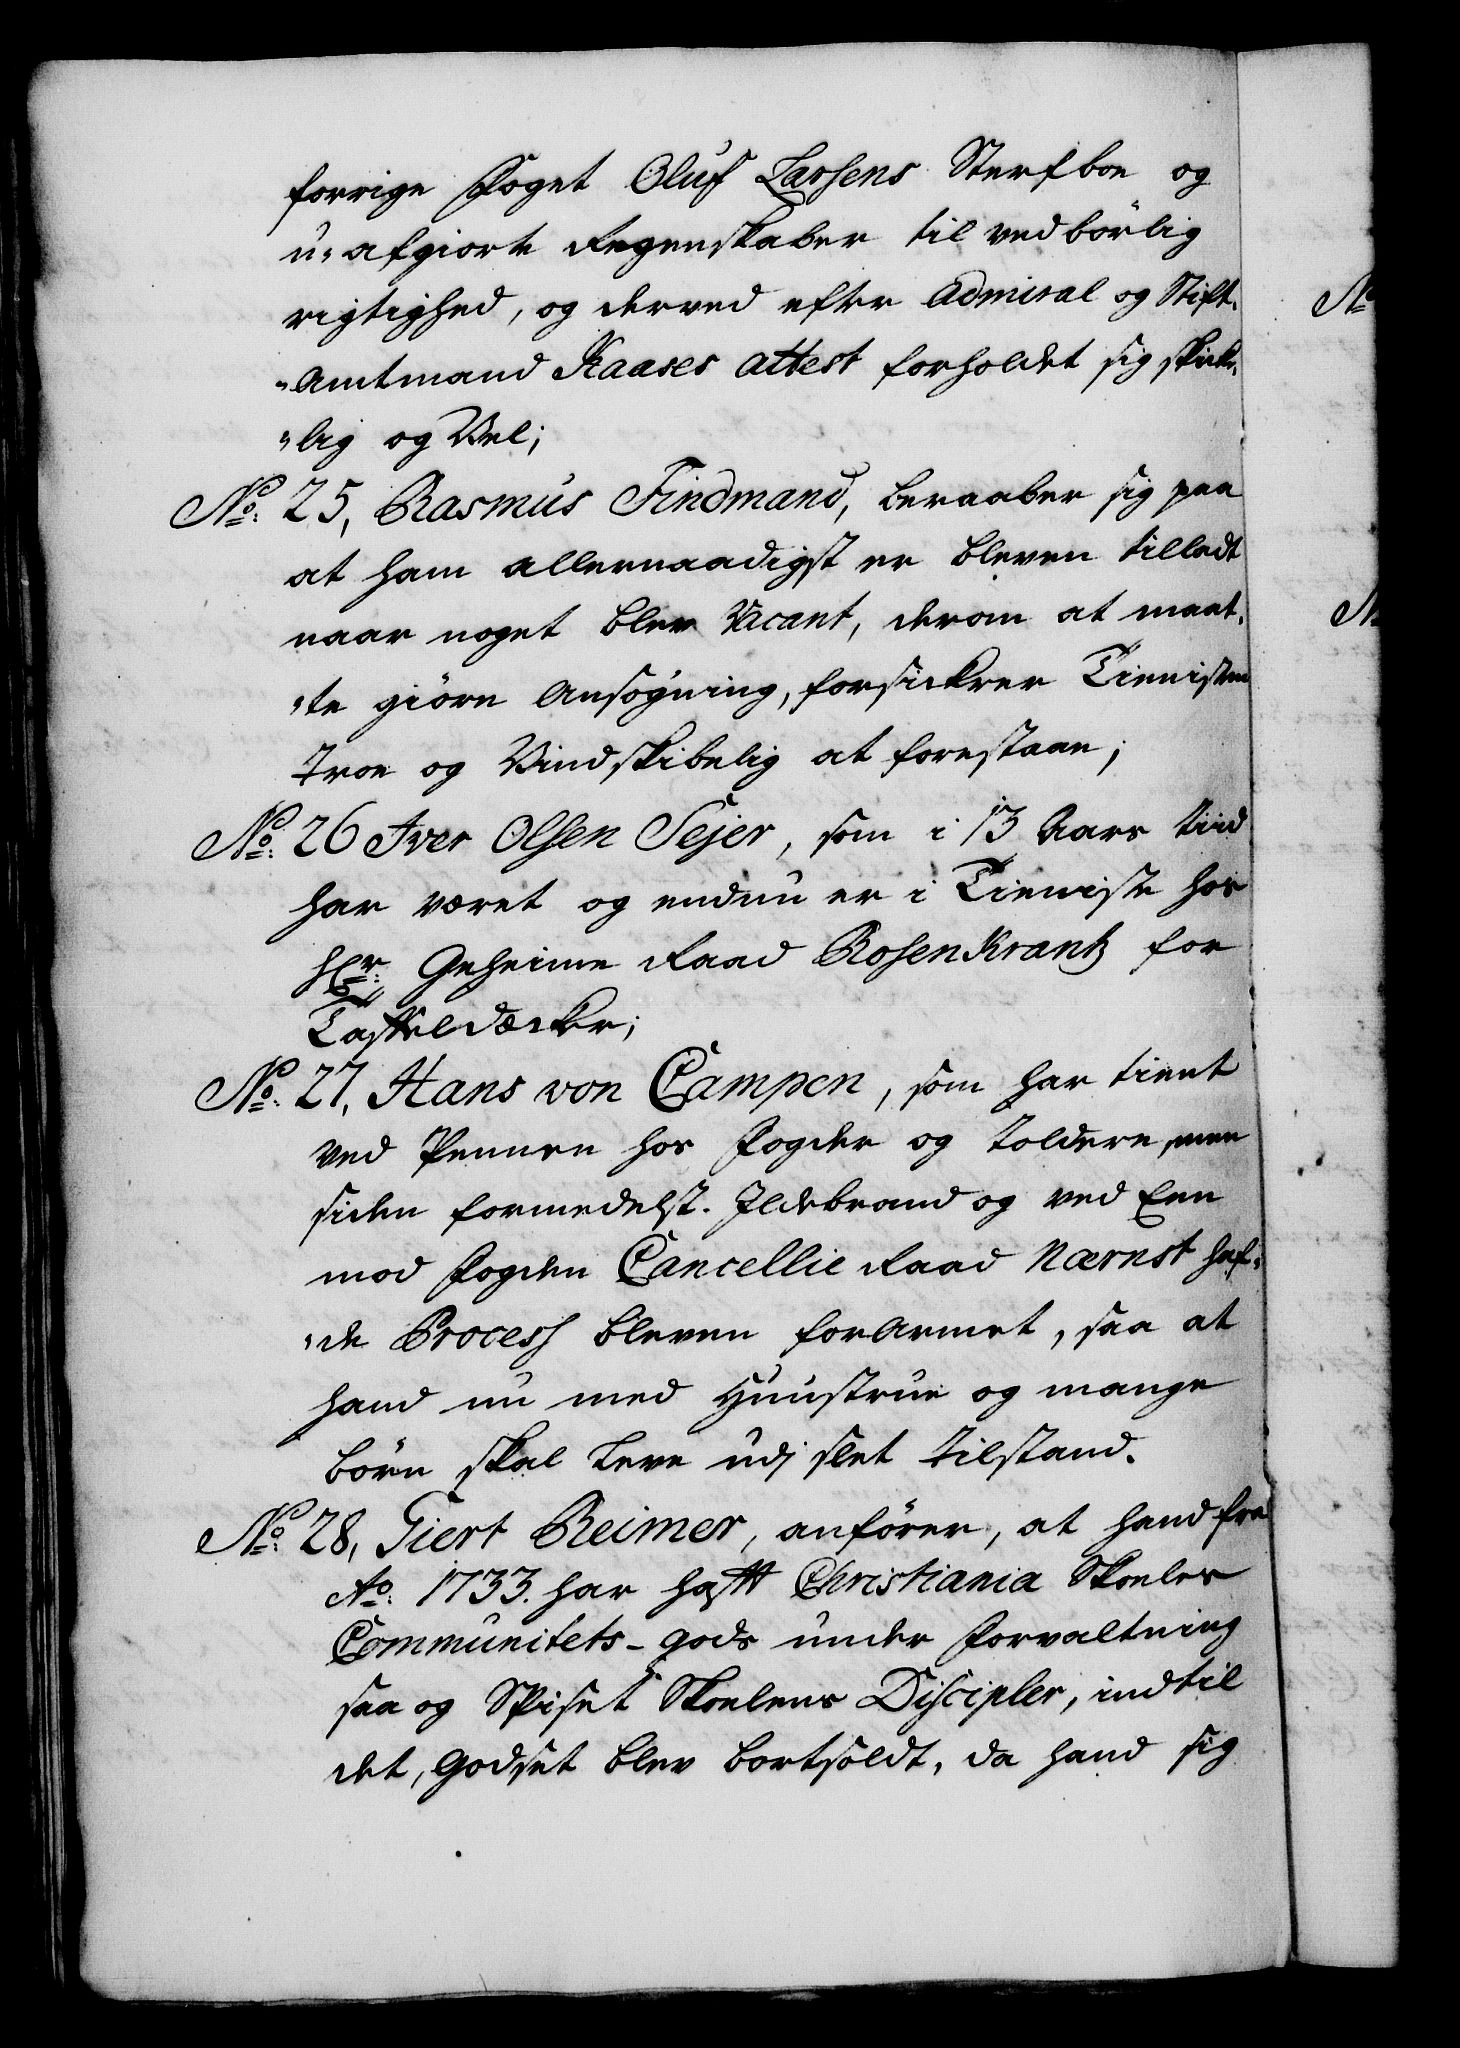 forrige Foget Oluf Larsens Sterfboe og
u-afgiorte Regenskaber til vedbörlig
rigtighed, og derved efter Admiral og Stift-
-Amtmand Kaases attest forholdet sig skick-
-lig og Vel;
No: 25, Rasmus Findmand, beraaber sig paa
at ham allernaadigst er bleven tilladt
naar noget blev Vacant, derom at maat-
-te giöre Ansögning, forsickrer Tienisten
Troe og Vindskibelig at forestaae;
No: 26 Iver Olsen Sejer, som i 13 Aars tiid
har været og endnu er i Tieniste hos
Hr: Geheime Raad Rosenkrantz for
Taffeldecker;
No: 27, Hans von Campen, som har tient
ved Pennen hos Fogder og Toldere, men
siden formedelst Ildebrand og ved Een
mod Fogden Cancellie Raad Nærnst haf-
-de Process bleven forarmet, saa at
hand nu med Huustrue og mange
börn skal Leve udj slet tilstand.
No: 28, Giert Reimer, anförer, at hand fra
Ao: 1733. har hafft Christiania Skoeles
Communitets-gods under Forvaltning
saa og Spiset Skoelens Discipler, indtil
det, Godset blev bortsoldt, da hand sig
No
No